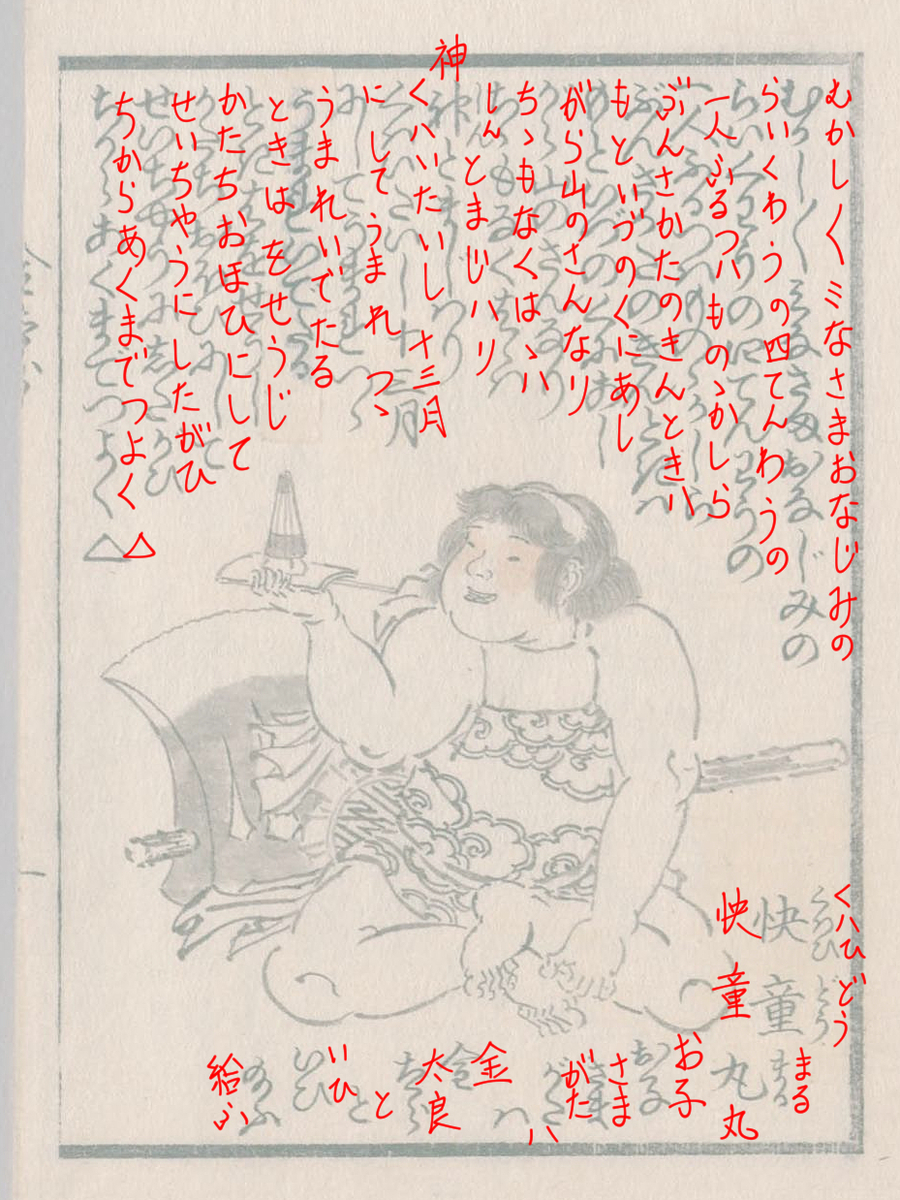 むかし〱ミなさまおなじみの
らいくわうの四てんわうの
一人ぶるつハものゝかしら
ぶんさかたのきんときハ
もといづのくにあし
がら山のさんなり
ちゝもなくはゝハ
しんとまじハり
神
くハいたいし十三月
にしてうまれつゝ
うまれいでたる
ときはをせうじ
かたちおほひにして
せいちやうにしたがひ
ちからあくまでつよく
△
くハひどう
まる
快童
丸
お子
さま
がたハ
金
太良
と
いひ
給ふ